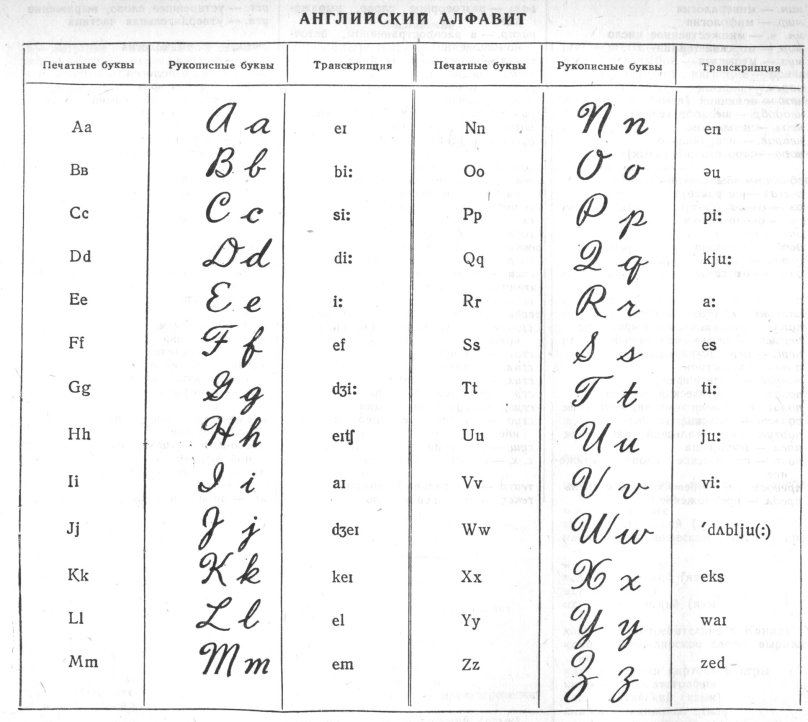 АНГЛИЙСКИЙ АЛФАВИТ
Печатные буквы Рукописные буквы Транскрипция Печатные буквы Рукописные буквы Транскрипция
Aa A a eɪ Nn N n en
Bв B b bi: Oo O o əu
Cc C c si: Pp P p pi:
Dd D d di: Qq Q q kju:
Ee E e i: Rr R r a:
Ff F f ef Ss S s es
Gg G g dʒi: Tt T t ti:
Hh H h eɪtʃ Uu U u ju:
Ii I i aɪ Vv V v vi:
Jj J j dʒeɪ Ww W w ′dʌblju(:)
Kk K k keɪ Xx X x eks
Ll L l el Yy Y y waɪ
Mm M m em Zz Z z zed